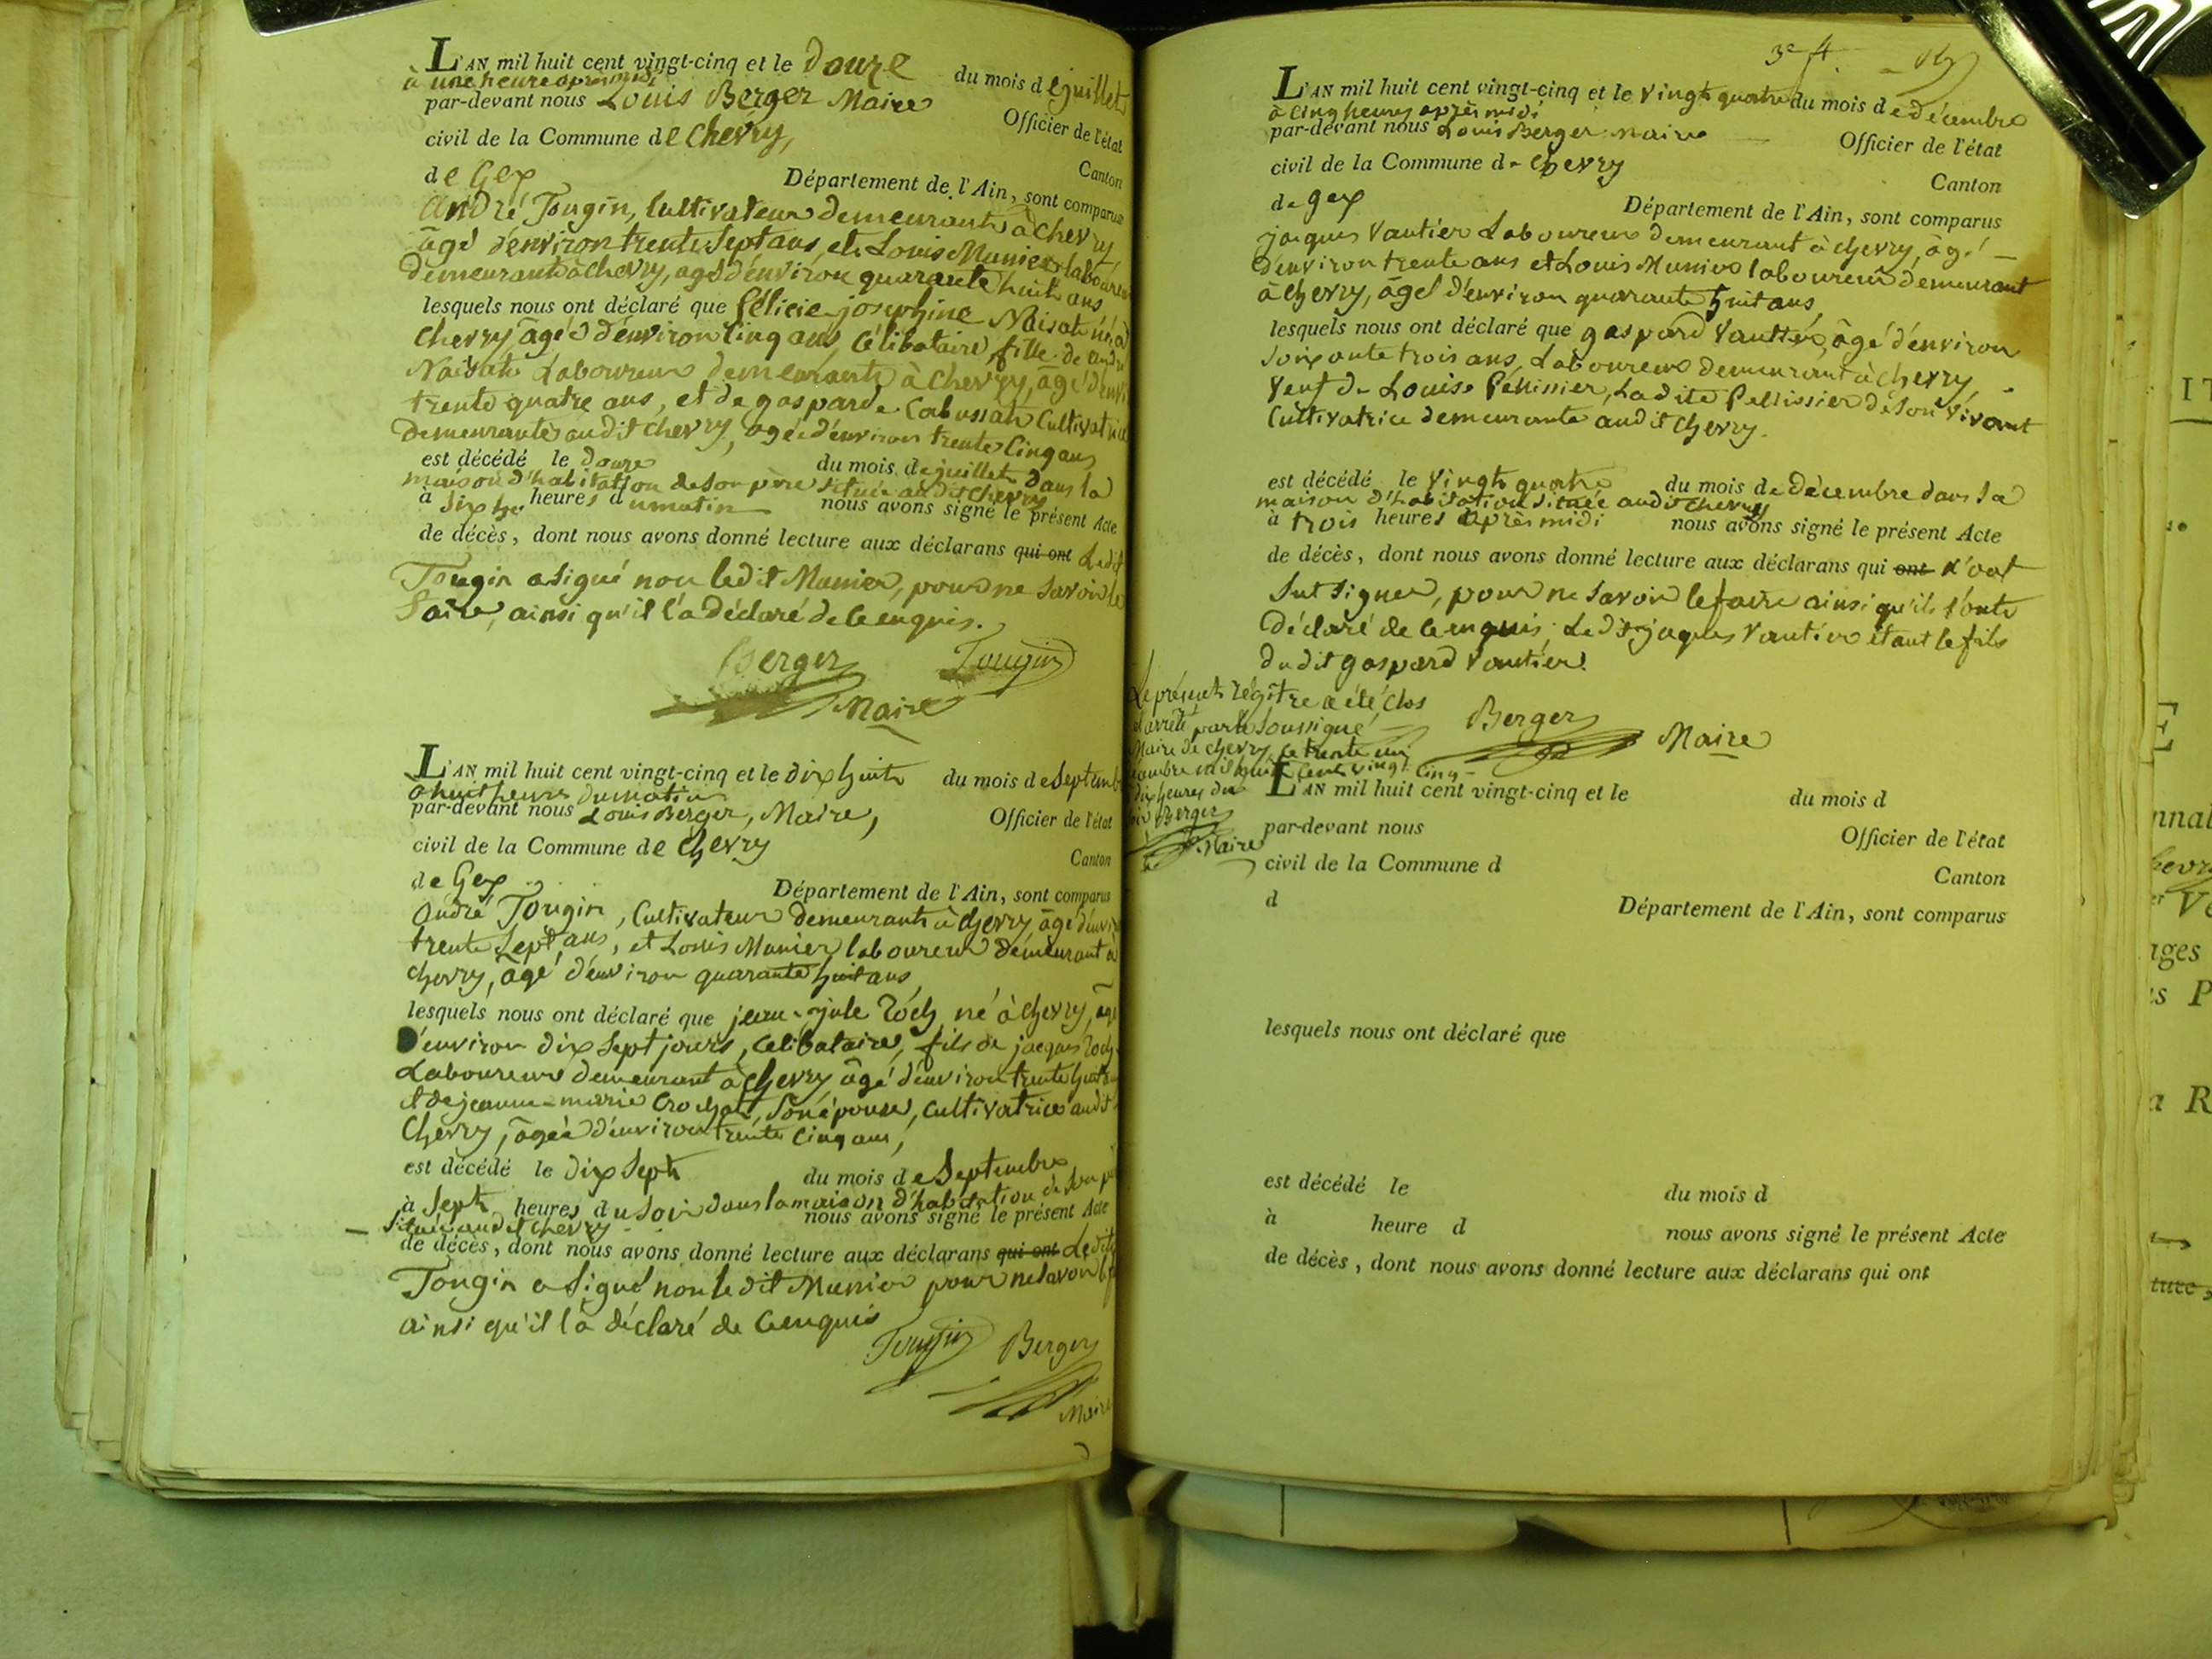 L'AN mil huit cent vingt-cinq et le douze du mois de juillet
à une heure après midi
par-devant nous Louis Berger Maire Officier de l'état
civil de la Commune de Chevry, Canton
de Gex Département de l'Ain, sont comparus
André Tougin, Cultivateur demeurant à Chevry
âgé d'environ trente sept ans, et Louis Munier laboureur
demeurant à Chevry, agé d'environ quarante huit ans
lesquels nous ont déclaré que félicie josephine Naisat née à
Chevry âgée d'environ Cinq ans, Célibataire, fille de andré
Naisat Laboureur demeurant à Chevry, âgé d'envi
trente quatre ans, et de gasparde Cabussat Cultivatrice
demeurante audit Chevry, agée d'environ trente Cinq ans
est décédé le douze du mois de juillet dans la
maison d'habitation de son père située audit Chevry
à Six heures du matin nous avons signé le présent Acte
de décès, dont nous avons donné lecture aux déclarans qui ont Ledit
Tougin a Signé non ledit Munier, pour ne Savoir le
faire, ainsi qu'il l'a déclaré de ce enquis.
Berger Tougin
Maire
L'AN mil huit cent vingt-cinq et le dix huit du mois de Septemb
à huit heures du matin
par-devant nous Louis Berger, Maire, Officier de l'état
civil de la Commune de Chevry Canton
de Gex Département de l'Ain, sont comparus
André Tougin, Cultivateur demeurant à Chevry, âgé d'envir
trente Sept ans, et Louis Munier laboureur demeurant à
Chevry, âgé d'environ quarante huit ans
lesquels nous ont déclaré que jean-jule Roch né à Chevry, agé
D'environ dix Sept jours, Célibataire, fils de jacques Roch
Laboureur demeurant à Chevry âgé d'environ trente huit
et de jeanne-marie Crochat, Son épouse, Cultivatrice audit
Chevry, âgée d'environ trente Cinq ans,
est décédé le dix Sept du mois de Septembre
à Sept heures du Soir dans la maison d'habitation de Son pè
Située audit Chevry nous avons signé le présent Acte
de décès, dont nous avons donné lecture aux déclarans qui ont Ledit
Tougin a Signé non ledit Munier pour ne Savoir le f
ainsi qu'il l'a déclaré de Ce enquis
Tougin Berger
Maire
3e f.
L'AN mil huit cent vingt-cinq et le Vingt quatre du mois de décembre
à Cinq heures après midi
par-devant nous Louis Berger maire Officier de l'état
civil de la Commune de Chevry Canton
de gex Département de l'Ain, sont comparus
jacques Vautier Laboureur demeurant à Chevry, âgé
d'environ trente ans et Louis Munier laboureur demeurant
à Chevry, âgé d'environ quarante huit ans
lesquels nous ont déclaré que gaspard Vautier, âgé d'environ
Soixante trois ans, Laboureur demeurant à Chevry,
Veuf de Louise Pellissier, Ladite Pellissier de Son Vivant
Cultivatrice demeurante audit Chevry.
est décédé le Vingt quatre du mois de Décembre dans Sa
maison d'habitation située audit Chevry
à trois heures après midi nous avons signé le présent Acte
de décès, dont nous avons donné lecture aux déclarans qui ont n'ont
Sut Signer, pour ne Savoir le faire ainsi qu'ils l'ont
Déclaré de Ce enquis, Ledit jaques Vautier étant le fils
Dudit gaspard Vautier.
Berger Maire
Le présent régître a été Clos
et arrêté par le Soussigné
Maire de Chevry Ce trente un
cembre mil huit Cent vingt Cinq
dix heures du
Berger
Maire
L'AN mil huit cent vingt-cinq et le du mois d
par-devant nous Officier de l'état
civil de la Commune d Canton
d Département de l'Ain, sont comparus
lesquels nous ont déclaré que
est décédé le du mois d
à heure d nous avons signé le présent Acte
de décès, dont nous avons donné lecture aux déclarans qui ont